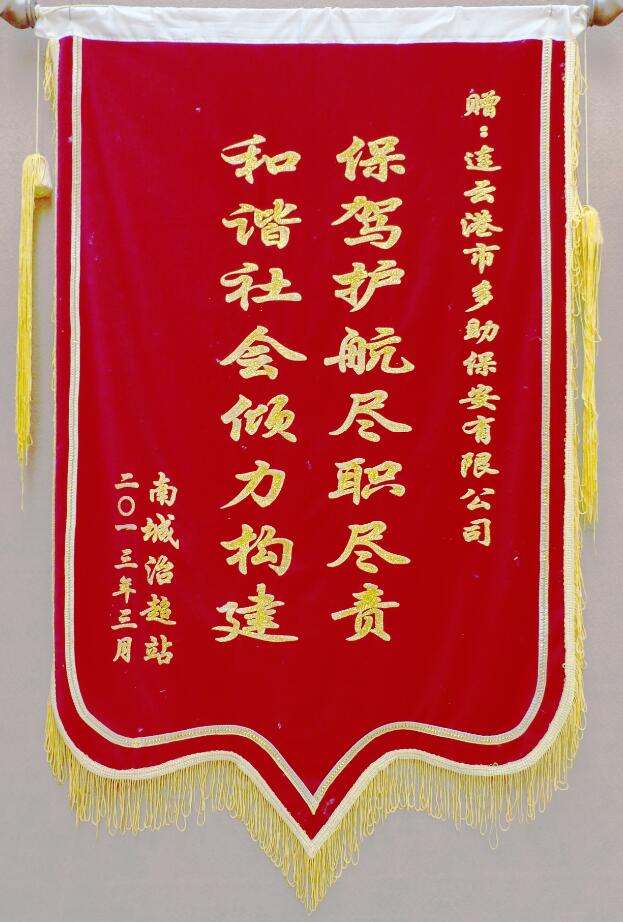 赠：连云港市多助保安有限公司
保驾护航尽职尽责
和谐社会倾力构建
南城治超站
二〇一三年三月